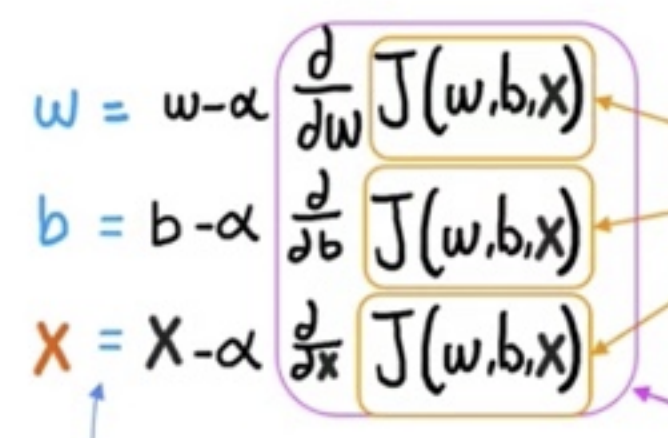 w = w-α ∂/∂w J(w,b,x)
b = b-α ∂/∂b J(w,b,x)
X = X-α ∂/∂x J(w,b,x)